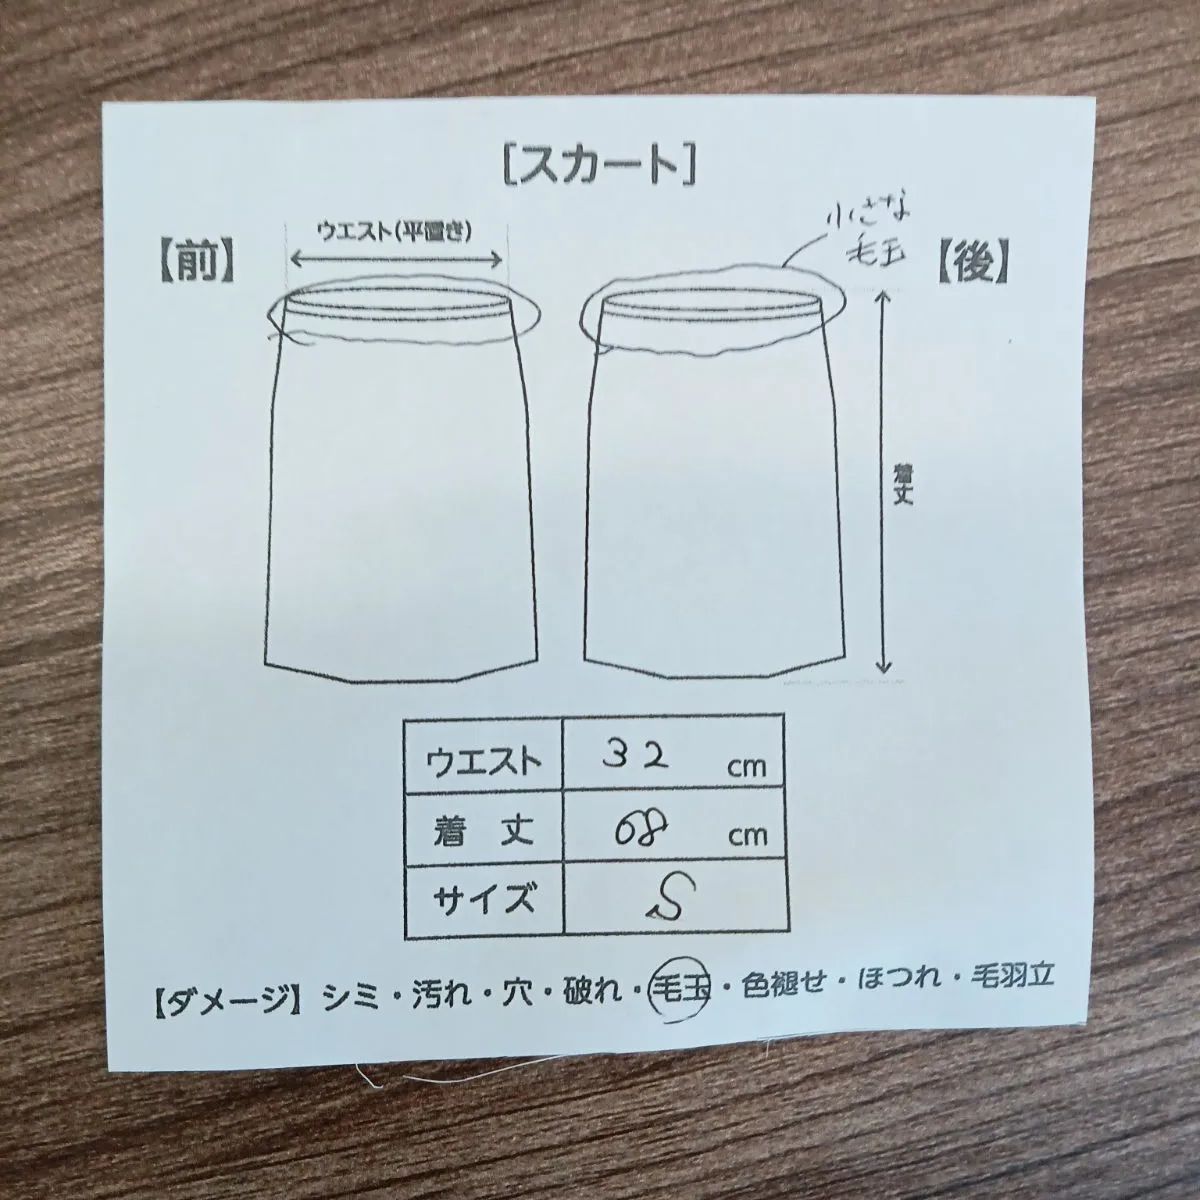 [スカート]
ウエスト(平置き)
小さな
毛玉
【前】
【後】
着丈
ウエスト 32 cm
着 丈 68 cm
サイズ S
【ダメージ】 シミ・汚れ・穴・破れ・毛玉・色褪せ・ほつれ・毛羽立